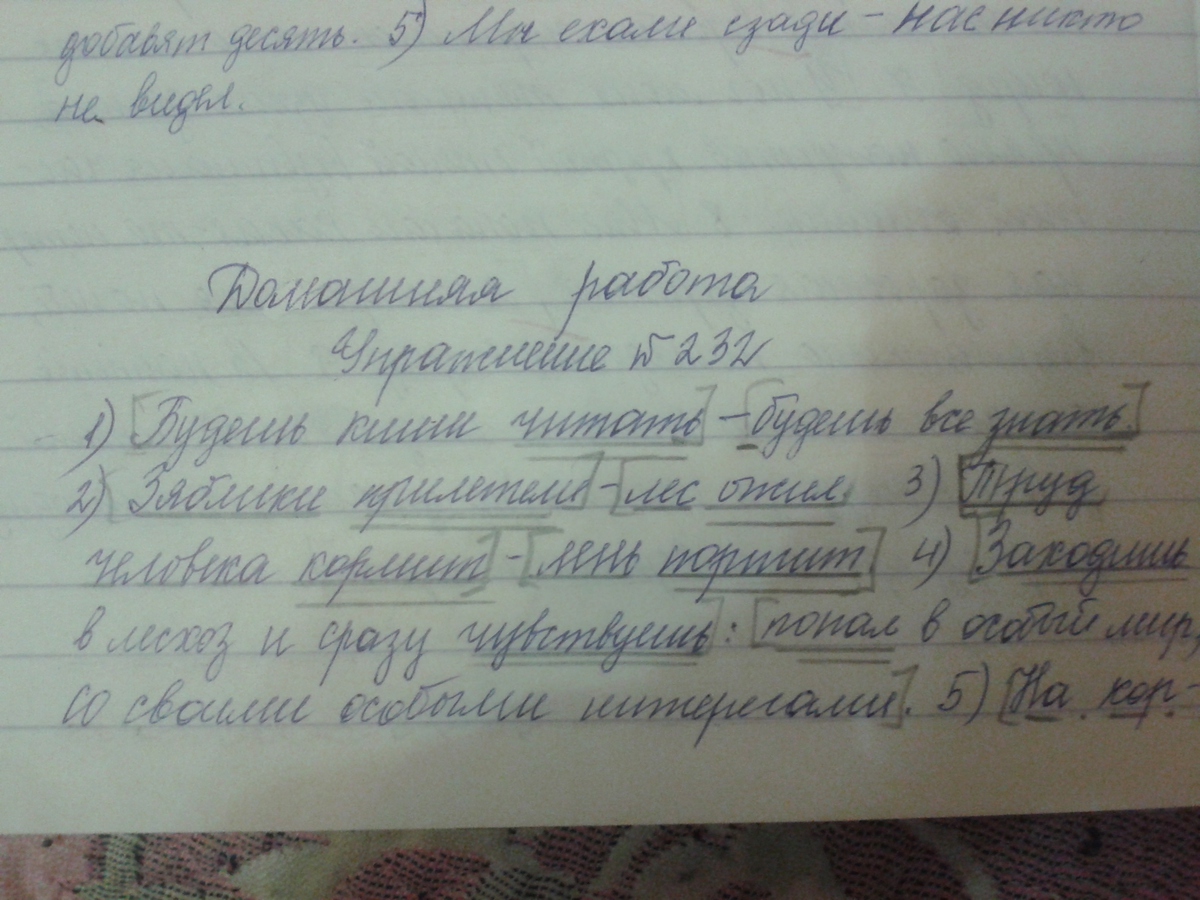 добавят десять. 5) Мы ехали сзади - нас никто
не видел.
Домашняя работа
Упражнение №232
1) [Будешь книги читать] - [будешь все знать.]
2) [Зяблики прилетели] - [лес ожил. 3) [Труд
человека кормит] - [лень портит] 4) [Заходишь
в лесхоз и сразу чувствуешь]: [попал в особый мир,
со своими особыми интересами]. 5) [На кор-